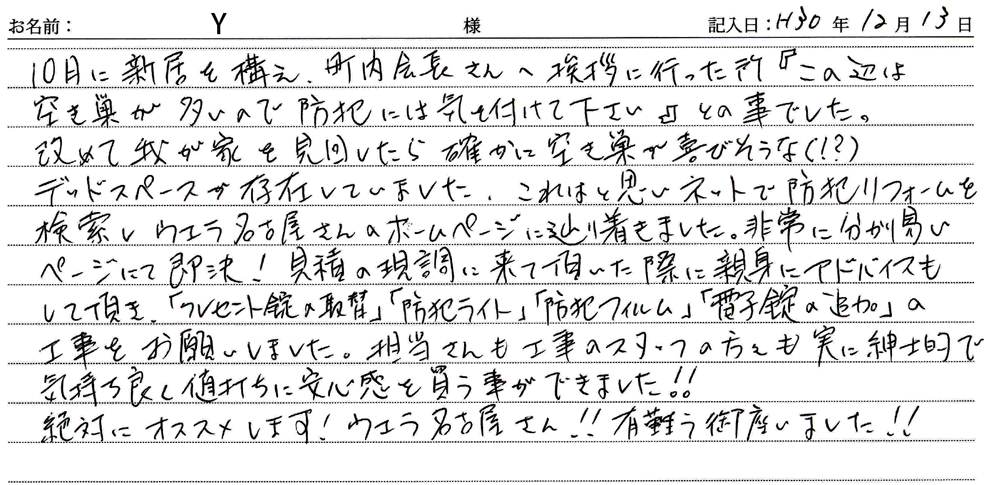 お名前： Y 様 記入日：H30年12月13日
10月に新居を構え、町内会長さんへ挨拶に行った所『この辺は
空き巣が多いので防犯には気を付けて下さい』との事でした。
改めて我が家を見回したら確かに空き巣が喜びそうな(!?)
デッドスペースが存在していました。これはと思いネットで防犯リフォームを
検索しウエラ名古屋さんのホームページに辿り着きました。非常に分かり易い
ページにて即決！見積の現調に来て頂いた際に親身にアドバイスも
して頂き、「クレセント錠の取替」「防犯ライト」「防犯フィルム」「電子錠の追加」の
工事をお願いしました。担当さんも工事のスタッフの方々も実に紳士的で
気持ち良く値打ちに安心感を買う事ができました!!
絶対にオススメします！ウエラ名古屋さん!!有難う御座いました!!